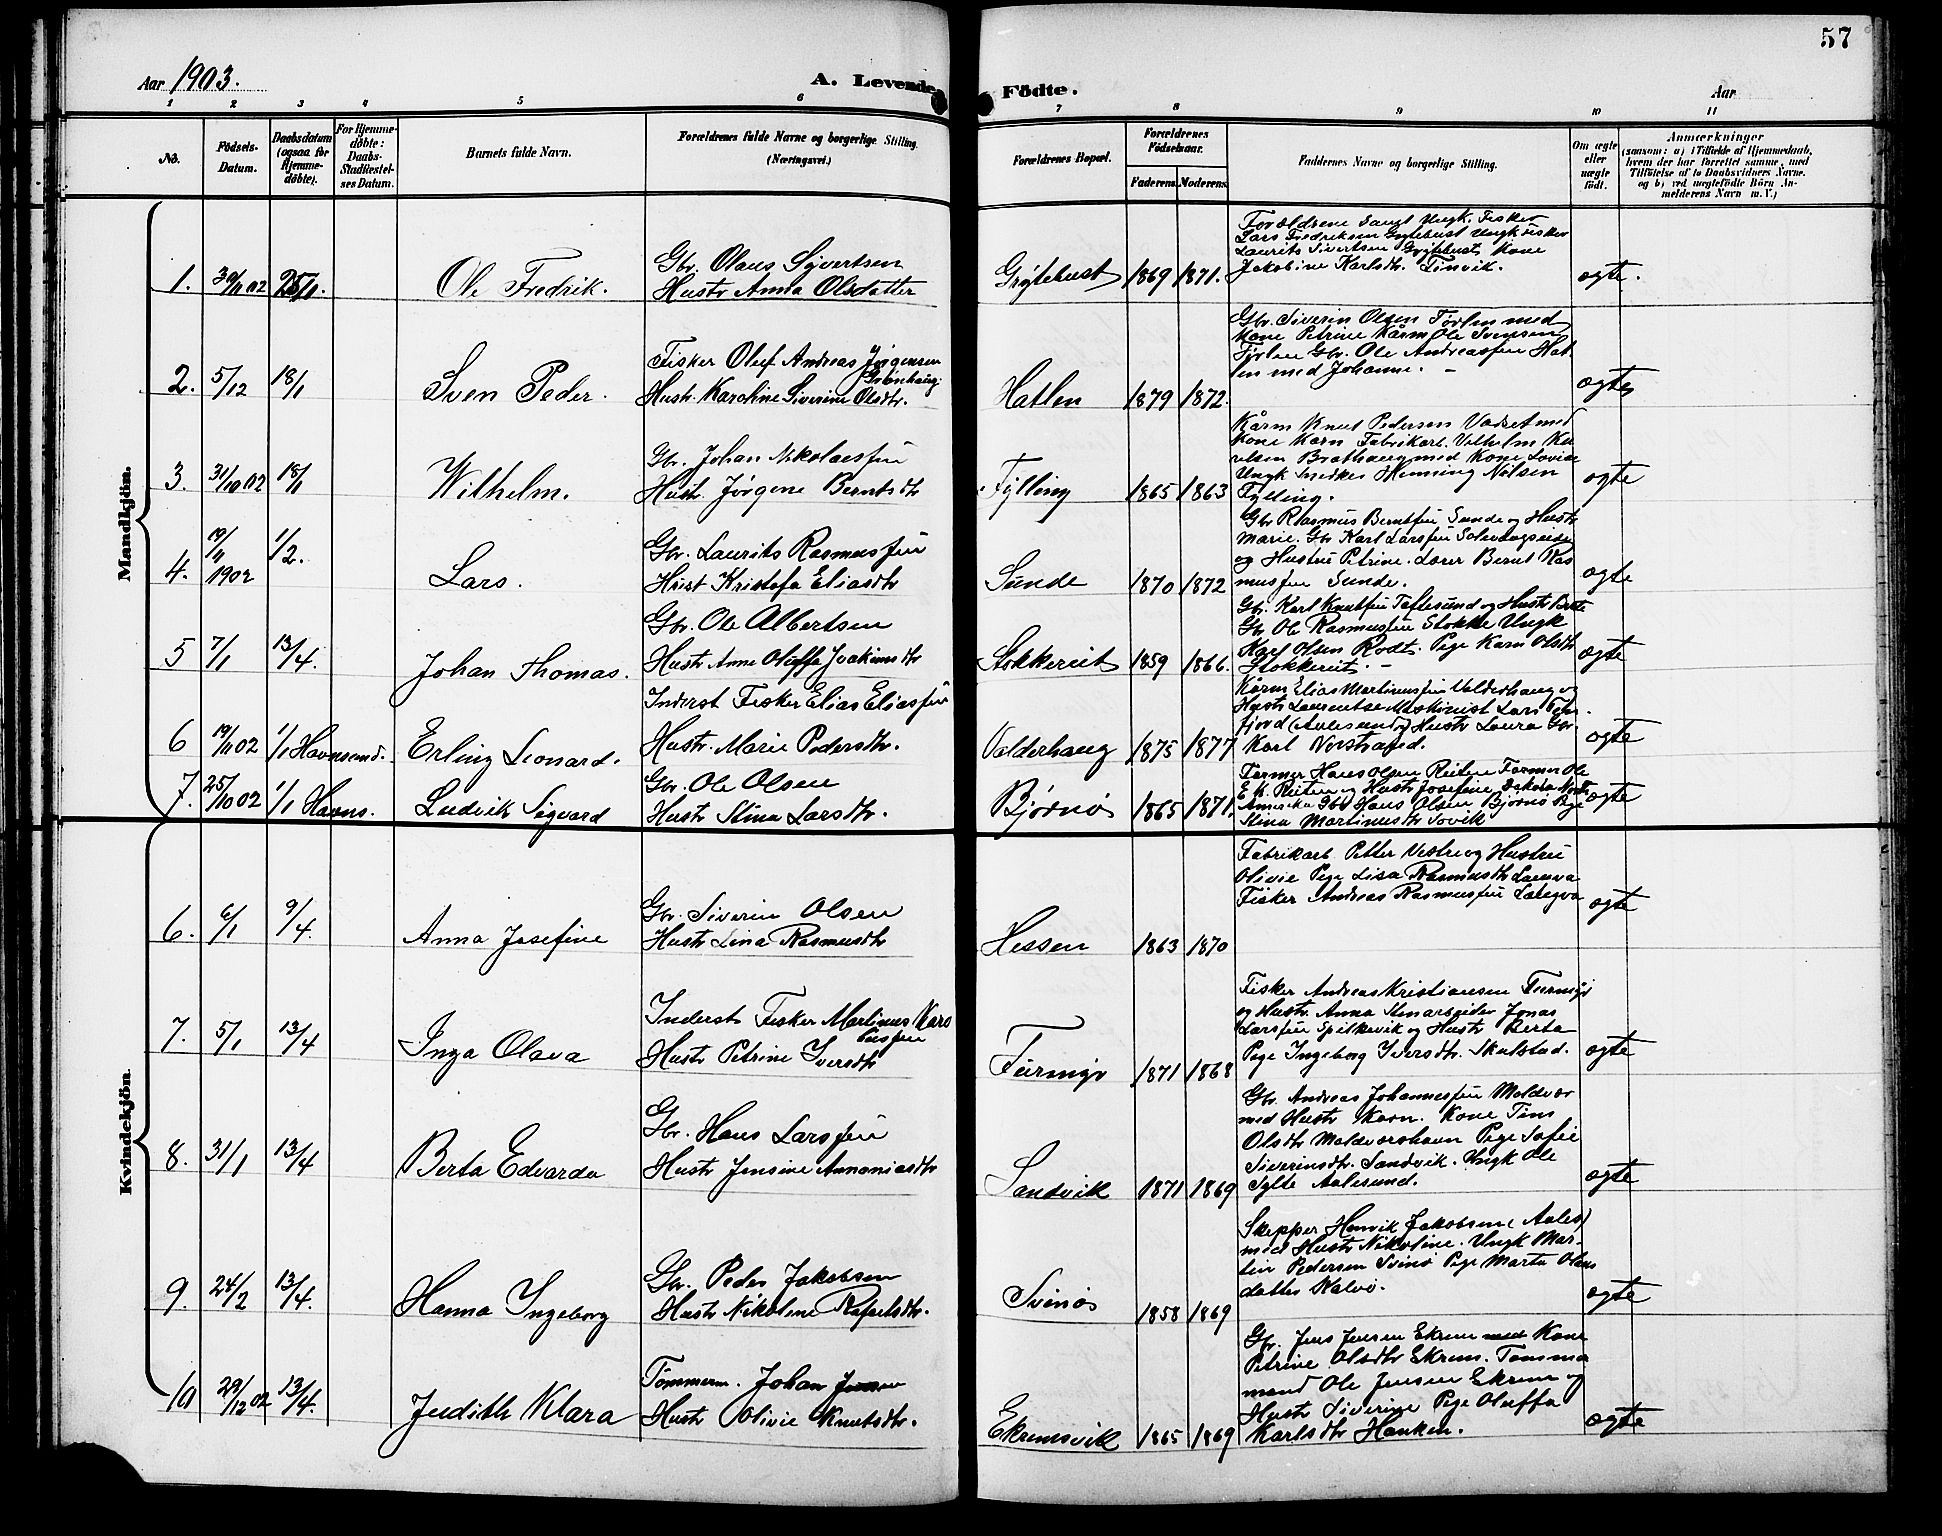 57
Aar 1903.
A. Levende Födte.
Aar
1 2 3 4 5 6 7 8 9 10 11
No.
Födsels-
Datum.
Daabsdatum
(ogsaa for
Hjemme-
döbte).
For Hjemme-
döbte:
Daabs-
Stadfæstel-
ses Datum.
Barnets fulde Navn.
Forældrenes fulde Navne og borgerlige Stilling.
(Næringsvei.)
Forældrenes Bopæl.
Forældrenes
Födselsaar.
Faderens.
Moderens.
Faddernes Navne og borgerlige Stilling.
Om ægte
eller
uægte
födt.
Anmærkninger
(saasom: a) i Tilfælde af Hjemmedaab,
hvem der har forrettet samme, med
Tilföielse af to Daabsvidners Navne.
og b) ved uægtefödte Börn An-
melderens Navn m. V.)
Mandkjön.
1. 30/11 02 25/1. Ole Fredrik.
Gbr. Olaus Sivertsen
Hustr Anna Olsdatter
Grytehust 1869 1871.
Forældrene samt Ungk. Fisker
Lars Fredriksen Grytehust Ungk Fisker
Laurits Sivertsen Grytehust Kone
Jakobine Karlsdtr. Finvik.
ægte.
2. 5/12 18/1 Sven Peder.
Fisker Oluf Andreas Jørgensen
Grønhaug
Hustr. Karoline Siverine Olsdtr.
Hatlen 1879 1872.
Gbr. Siverin Olsen Førlen med
Kone Petrine Kårm Ole Svensen
Gbr. Ole Andreassen Hat-
len med Johanne. –
ægte
3. 31/10 02 18/1 Wilhelm.
Gbr. Johan Nikolaissen
Hustr. Jørgine Berntsdtr
Fylling 1865 1863
Kårm Knut Pedersen Vadset med
Kone Karn Fabrikarb. Vilhelm Ka-
relsen Brathaug med Kone Lovise
Ungk Snedker Henning Nilsen
Fylling.
ægte
4. 19/11 1902 1/2. Lars.
Gbr. Laurits Rasmussen
Hust Kristofa Eliasdtr
Sunde 1870 1872
Gbr Rasmus Berntsen Sunde og Hustr
Marie. Gbr Karl Larssen
og Hustru Petrine. Lærer Bernt Ras
mussen Sunde.
ægte
5 7/1 13/4. Johan Thomas.
Gbr. Ole Albertsen
Hustr Anne Oluffa Joakimsdtr
Stokkereit 1859 1866.
Gbr. Karl Knutsen Teftesund og Hustr Berte
Gbr Ole Rasmussen Stokke Ungk
Karl Olsen Rødt. Pige Karn Olsdtr
Stokkereit. –
ægte
6 19/11 02 1/1 Havnsund. Erling Leonard.
Inderst Fisker Elias Eliassen
Hustr. Marie Pedersdtr.
Valderhaug 1875 1877
Kårm Elias Martinussen Valderhaug og
Hustr Laurentse Maskinist Lars
fjord (Aalesund) Hustr Laura Gbr.
Karl Norstrand.
ægte
7. 25/10 02 1/1 Havns. Ludvik Sigvard
Gbr. Ole Olsen
Hustr Stina Larsdtr.
Bjørnø 1865 1871.
Farmer Hans Olsen Reiten Farmer Ole
E. K. Reiten og Hustr Josefine Dakota Nord
Amerika Gbr Hans Olsen Bjørnø Pige
Stina Martinusdtr Søvik
ægte
Kvindekjön.
6. 6/1 9/4. Anna Josefine
Gbr. Siverin Olsen
Hustr Lina Rasmusdtr
Hessen 1863 1870
Fabrikarb. Petter Vestre og Hustru
Olivie Pige Lisa Rasmusdtr
Fisker Andreas Rasmussen
ægte
7. 5/1 13/4 Inga Olava
Inderst Fisker Martinus Kars
tensen
Hustr Petrine Iversdtr
Furmyr 1871 1868
Fisker Andreas Kristiansen Furmyr
og Hustr. Anna Stenarbeider Jonas
Larssen Spilkevik og Hustr Berta
Pige Ingeborg Iversdtr. Skulstad.
ægte
8. 31/1 13/4 Berta Edvarda
Gbr. Hans Larssen
Hustr Jensine Annaniasdtr
Sandvik 1871 1869
Gbr. Andreas Johannessen Moldvær
med Hustr Karn. Kone Tina
Olsdtr Moldværshavn Pige Sofie
Siverinsdtr. Sandvik. Ungk Ole
Sylte Aalesund.
ægte
9. 24/2 13/4. Hanna Ingeborg
Gbr. Peder Jakobsen
Hustr Nikoline Rafaelsdtr.
Svinø 1858 1869
Skepper Henrik Jakobsen (Aales)
med Hustr Nikoline. Ungk Mar-
tin Pedersen Svinø Pige Marta Olaus
datter Kalvø.
ægte
10 29/12 02 13/4. Judith Klara
Tømmerm. Johan Jensen
Hustr Olivie Knutsdtr.
Ekremsvik 1865 1869
Gbr. Jens Jensen Ekrem med Kone
Petrine Olsdtr Ekrem. Tømmer
mand Ole Jensen Ekrem og
Hustr Siverine Pige Oluffa
Karlsdtr Hanken.
ægte